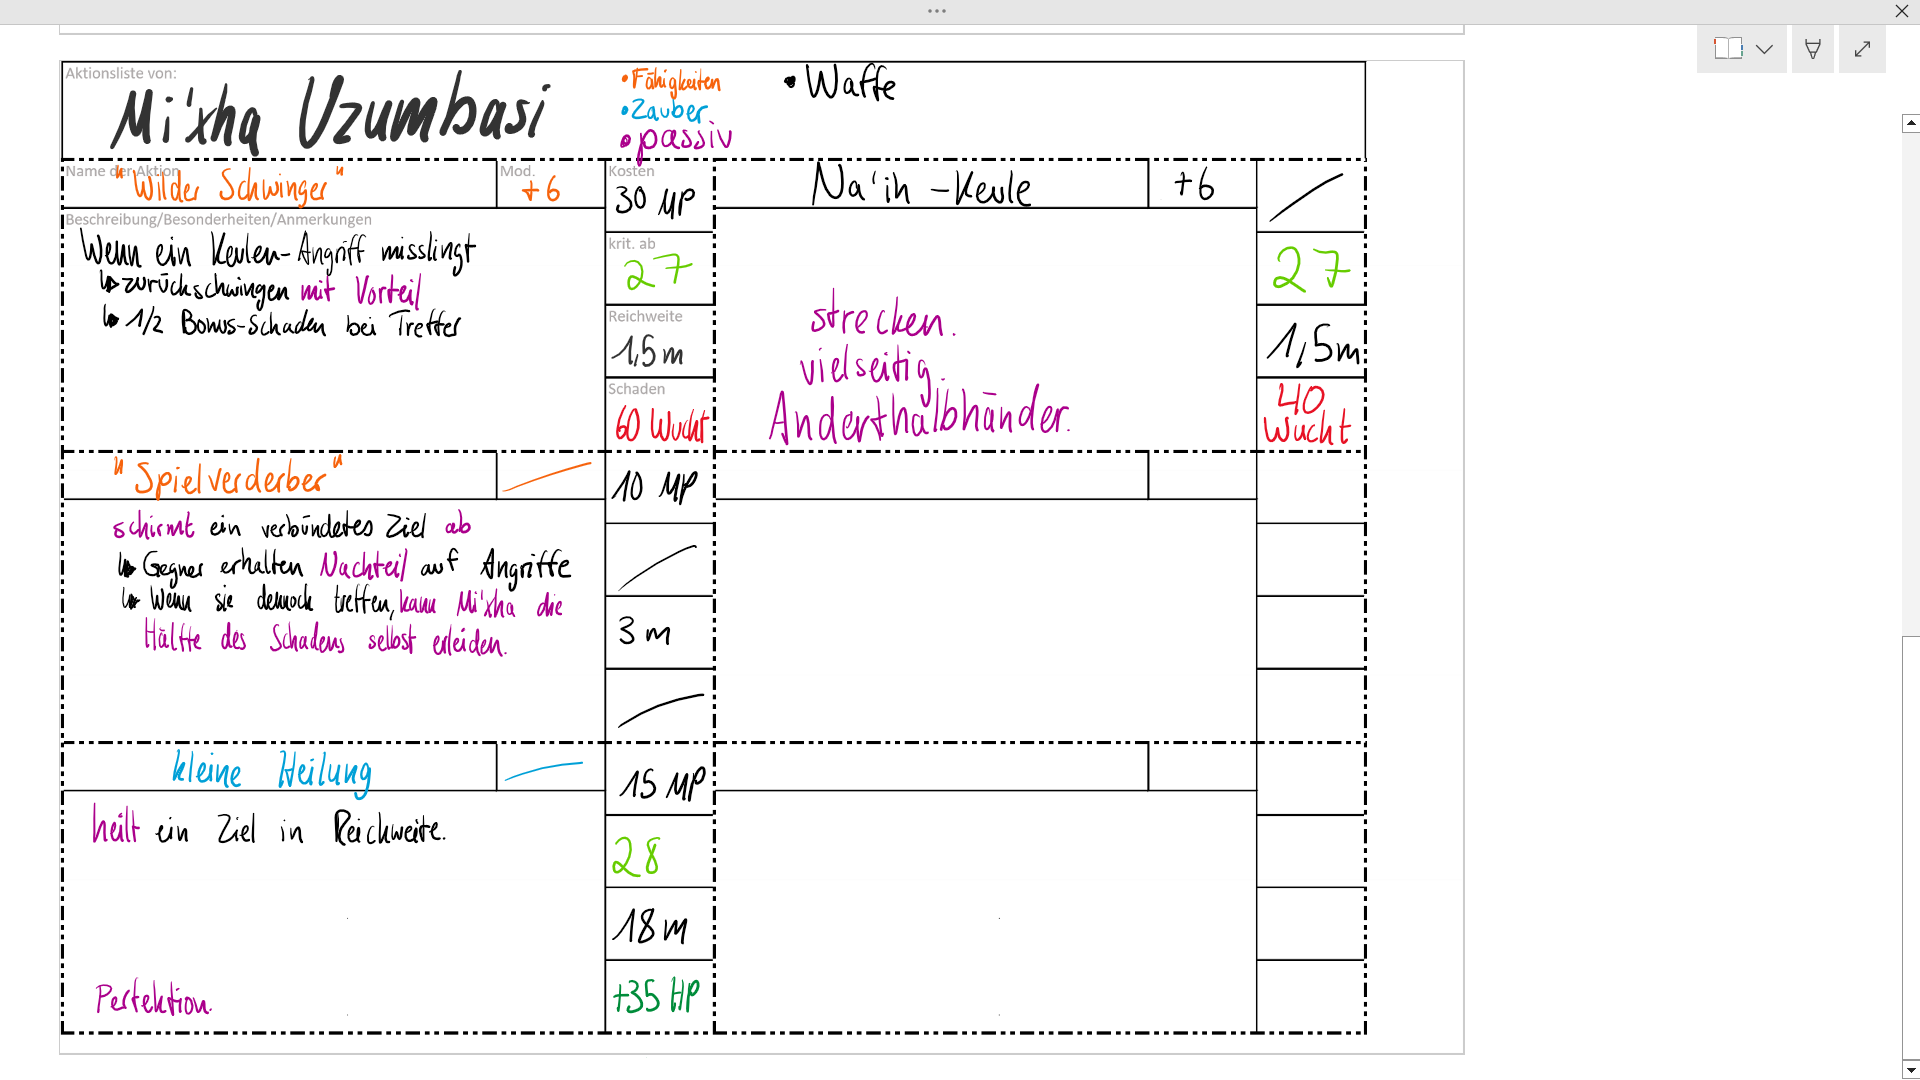 Aktionsliste von:
Mi'xha Uzumbasi
• Fähigkeiten
• Zauber
• passiv
• Waffe
Name der Aktion
"Wilder Schwinger"
Mod.
+6
Kosten
30 MP
Beschreibung/Besonderheiten/Anmerkungen
Wenn ein Keulen-Angriff misslingt
↳ zurückschwingen mit Vorteil
↳ 1/2 Bonus-Schaden bei Treffer
krit. ab
27
Reichweite
1,5 m
Schaden
60 Wucht
Na'in - Keule
+6
27
strecken.
vielseitig.
Anderthalbhänder.
1,5m
40
Wucht
"Spielverderber"
10 MP
schirmt ein verbündetes Ziel ab
↳ Gegner erhalten Nachteil auf Angriffe
↳ Wenn sie dennoch treffen, kann Mi'xha die
Hälfte des Schadens selbst erleiden.
3 m
kleine Heilung
15 MP
heilt ein Ziel in Reichweite.
28
18 m
Perfektion.
+35 HP